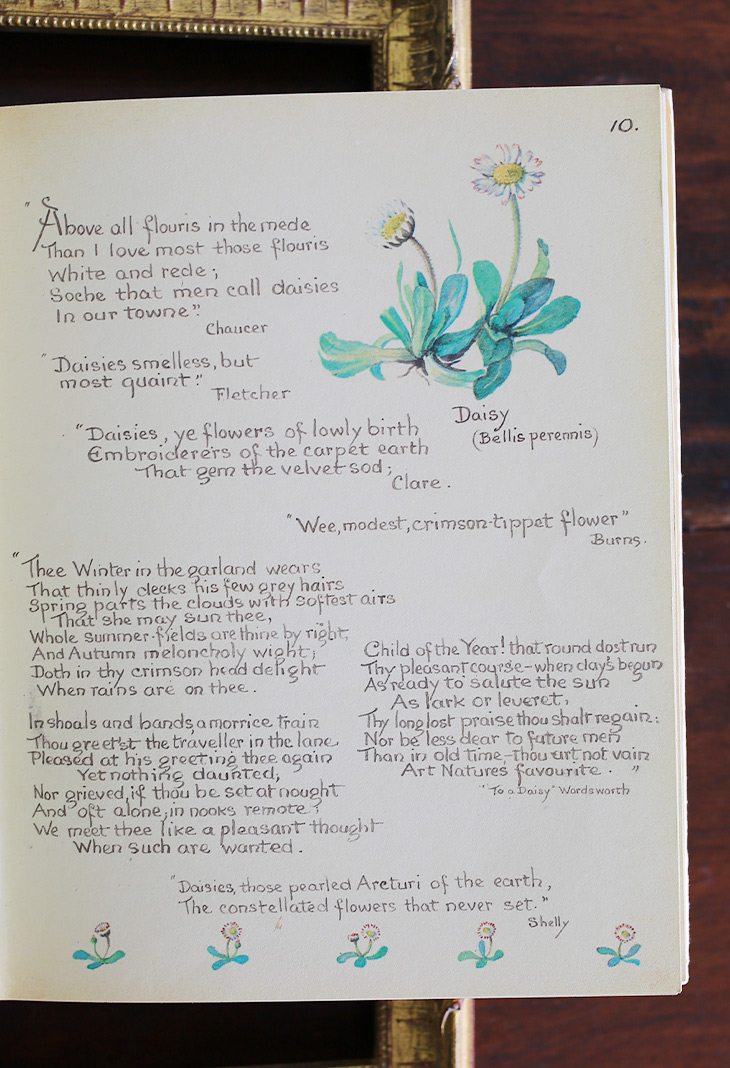 10.
"Above all flouris in the mede
Than I love most those flouris
White and rede;
Soche that men call daisies
In our towne".
Chaucer
"Daisies smelless, but
most quaint."
Fletcher
Daisy
(Bellis perennis)
"Daisies, ye flowers of lowly birth
Embroiderers of the carpet earth
That gem the velvet sod;
Clare.
"Wee, modest, crimson-tippet flower"
Burns.
"Thee Winter in the garland wears
That thinly decks his few grey hairs
Spring parts the clouds with softest airs
That she may sun thee,
Whole summer-fields are thine by right,
And Autumn meloncholy wight;
Doth in thy crimson head delight
When rains are on thee.
In shoals and bands, a morrice train
Thou greet'st the traveller in the lane,
Pleased at his greeting thee again
Yet nothing daunted,
Nor grieved, if thou be set at nought
And oft alone, in nooks remote;
We meet thee like a pleasant thought
When such are wanted.
Child of the Year! that round dost run
Thy pleasant course-when day's begun
As ready to salute the sun
As lark or leveret,
Thy long lost praise thou shalt regain:
Nor be less dear to future men
Than in old time,-thou art not vain
Art Natures favourite. "
"To a Daisy" Wordsworth
"Daisies, those pearled Arcturi of the earth,
The constellated flowers that never set."
Shelly